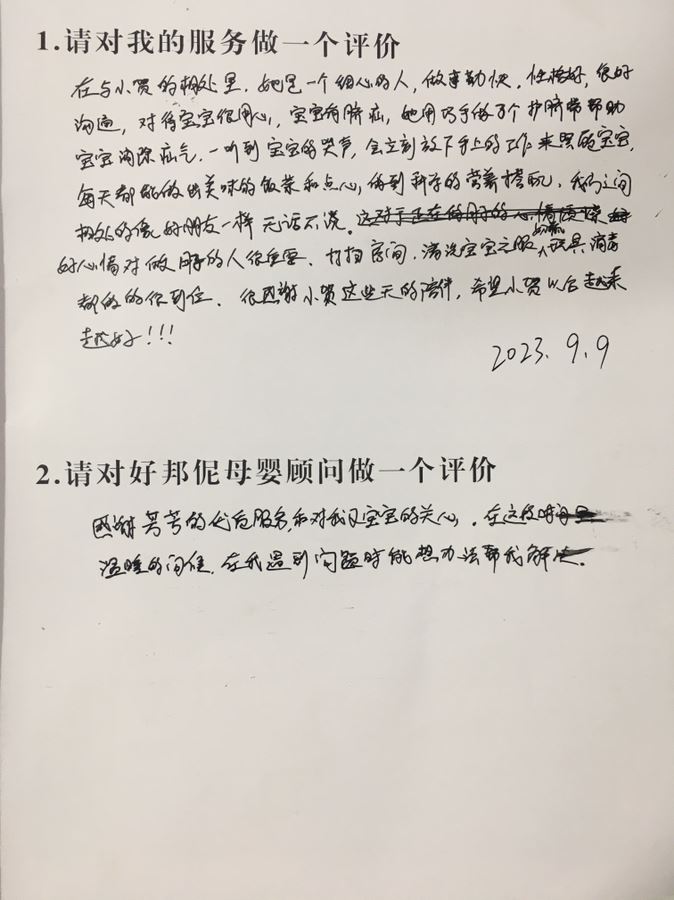 1.请对我的服务做一个评价
在与小贺的相处里，她是一个细心的人，做事勤快，性格好，很好
沟通，对待宝宝很用心，宝宝有脐疝，她用巧手做了个护脐带帮助
宝宝消除疝气，一听到宝宝的哭声，会立刻放下手上的工作来照顾宝宝，
每天都能做出美味的饭菜和点心，做到科学的营养搭配，我们之间
相处的像好朋友一样无话不谈。
好心情对做月子的人很重要、打扫房间，清洗宝宝衣服 玩具消毒
都做的很到位、很感谢小贺这些天的陪伴，希望小贺以后越来
越好！！！
2023.9.9
2.请对好邦伲母婴顾问做一个评价
感谢芳芳的优质服务，和对我及宝宝的关心，在这些
温暖的问候，在我遇到问题时能想办法帮我解决．